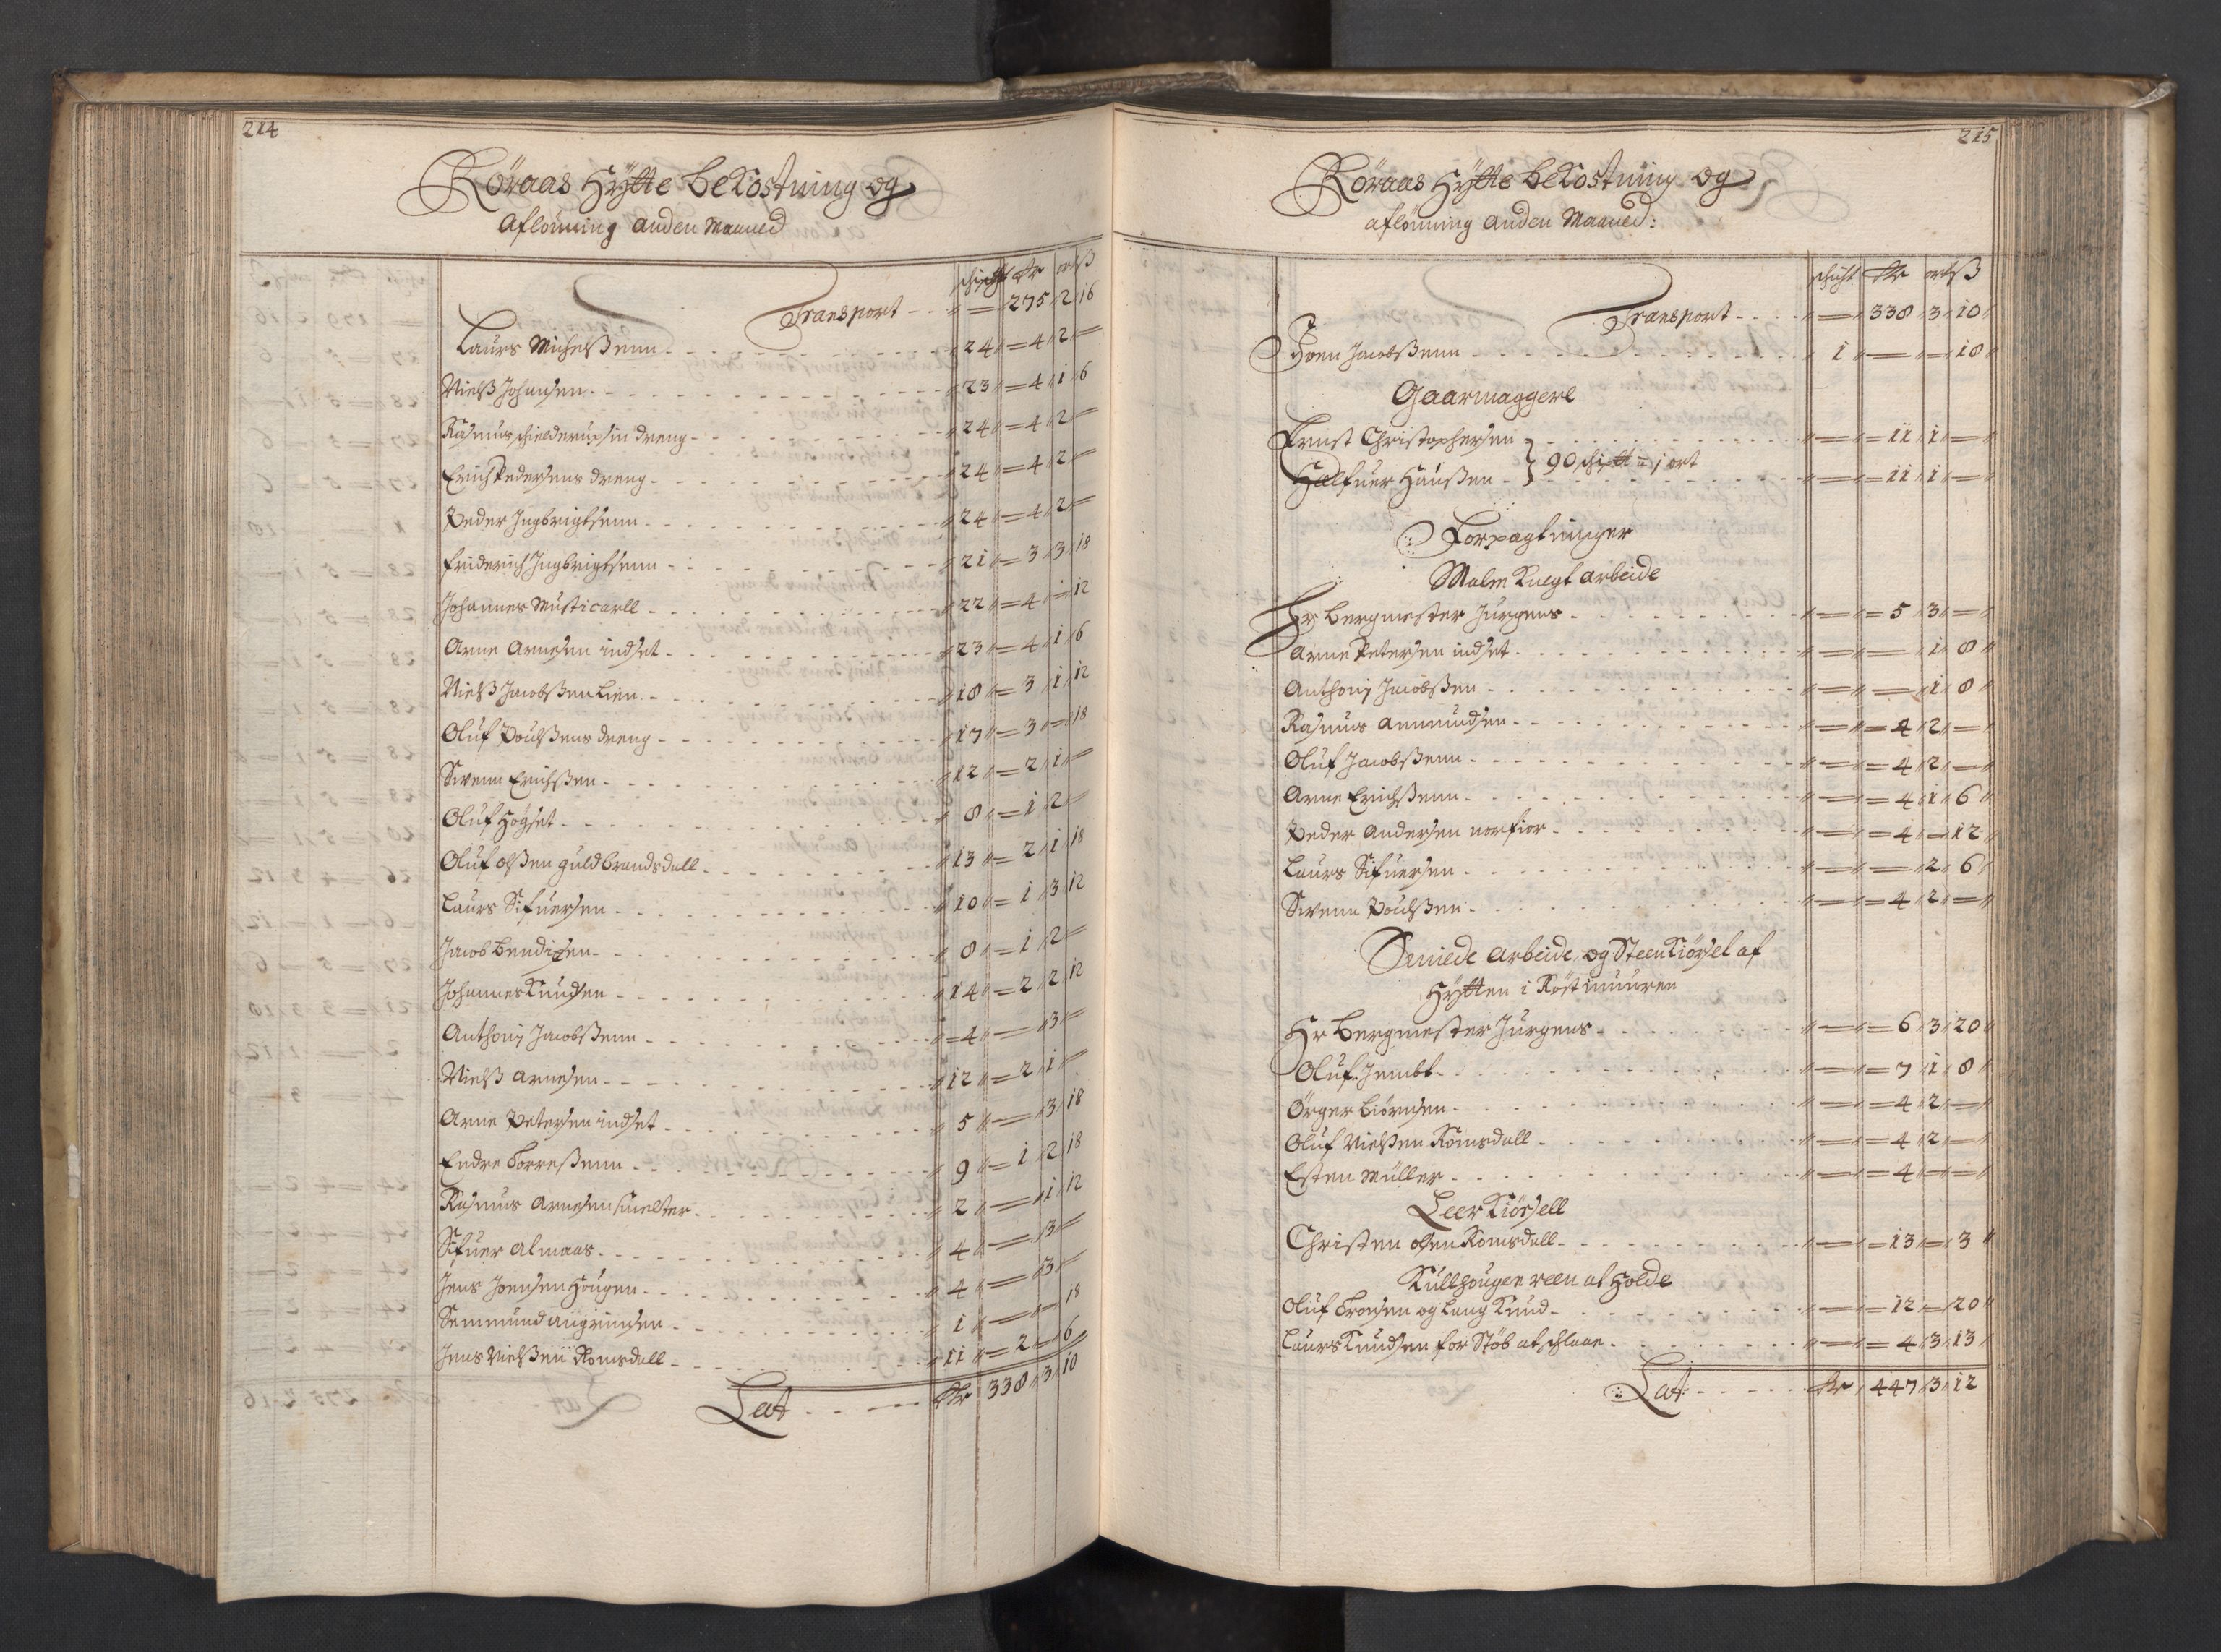 214
Röraas Hÿtte beKostning og
Aflönning anden Maaned
schicht Rdr ort ß
Transport - - " = 275 " 2 " 16
Laurs Michelßenn - " 24 " = 4 " 2 " =
Nielß Johansen - " 23 " = 4 " 1 " 6
Rasmus schielderups in dreng - " 24 " = 4 " 2 " =
Erich Pedersens dreng - " 24 " = 4 " 2 " =
Peder Ingbrigtsenn - " 24 " = 4 " 2 " =
Friderich Ingbrigtsenn - " 21 " = 3 " 3 " 18
Johannes Musticarll - " 22 " = 4 " = " 12
Arne Arnesen indset - " 23 " = 4 " 1 " 6
Nielß Jacobßen Lien - " 18 " = 3 " 1 " 12
Oluf Poulßens dreng - " 17 " = 3 " = " 18
Swenn Erichßen - " 12 " = 2 " 1 " =
Oluf Högset - " 8 " = 1 " 2 " =
Oluf olßen guldbrandsdall - " 13 " = 2 " 1 " 18
Laurs Sifuersen - " 10 " = 1 " 3 " 12
Jacob Bendixen - " 8 " = 1 " 2 " =
Johannes Knudsen - " 14 " = 2 " 2 " 12
Anthonj Jacobßenn - " = 4 " = " 3 " =
Nielß Arnesen - " 12 " = 2 " 1 " =
Arne Petersen indset - " 5 " = " 3 " 18
Endre Torreßenn - " 9 " = 1 " 2 " 18
Rasmus Arnesen smelter - " 2 " = " 1 " 12
Sifuer Almaas - " 4 " = " 3 " =
Jens Joensen Hougen - " 4 " = " 3 " =
Semmund - " 1 " = " = " 18
Jens Nielßen Romsdall - " 11 " = 2 " = " 6
Lat - - - Rdr 338 " 3 " 10
215
Röraas Hÿtte beKostning og
aflönning anden Maaned:
schicht Rdr ort ß
Transport - - - " = " 338 " 3 " 10 "
Joen Jacobßenn - " 1 " = " = " 18 "
Gaarmaggere
Ernst Christophersen - " = " = 11 " 1 " = "
} 90 schicht = 1 ort
Halfuer Hanßen - " = " = 11 " 1 " = "
Forpagtninger
Malm Knegt arbeide
Hr Bergmester Jürgens - " = " = 5 " 3 " = "
Arne Petersen indset - " = " = " 1 " 8 "
Anthonj Jacobßen - " = " = " 1 " 8 "
Rasmus Ammundsen - " = " = 4 " 2 " = "
Oluf Jacobßenn - " = " = 4 " 2 " = "
Arne Erichßenn - " = " = 4 " 1 " 6 "
Peder Andersen norfior - " = " = 4 " = 12 "
Laurs Sifuersen - " = " = " 2 " 6 "
Swenn Poulßen - " = " = 4 " 2 " = "
Smiede arbeide og SteenKiörsel af
Hÿtten i Röst muuren
Hr Bergmester Jürgens - " = " = 6 " 3 " 20 "
Oluf Jembt - " = " = 7 " 1 " 8 "
Örger Biörnsen - " = " = 4 " 2 " = "
Oluf Nielßen Romsdall - " = " = 4 " 2 " = "
Esten Müller - " = " = 4 " = " = "
Leer Kiörsell
Christen olsen Romsdall - " = " = 13 " = " 3 "
Kullhougen reen at Holde
Oluf Tronsen og Lang Knud - " = " = 12 " = " 20 "
Laurs Knudsen for Stöb at schlaae - " = " = 4 " 3 " 13 "
Lat - - - Rdr 447 " 3 " 12